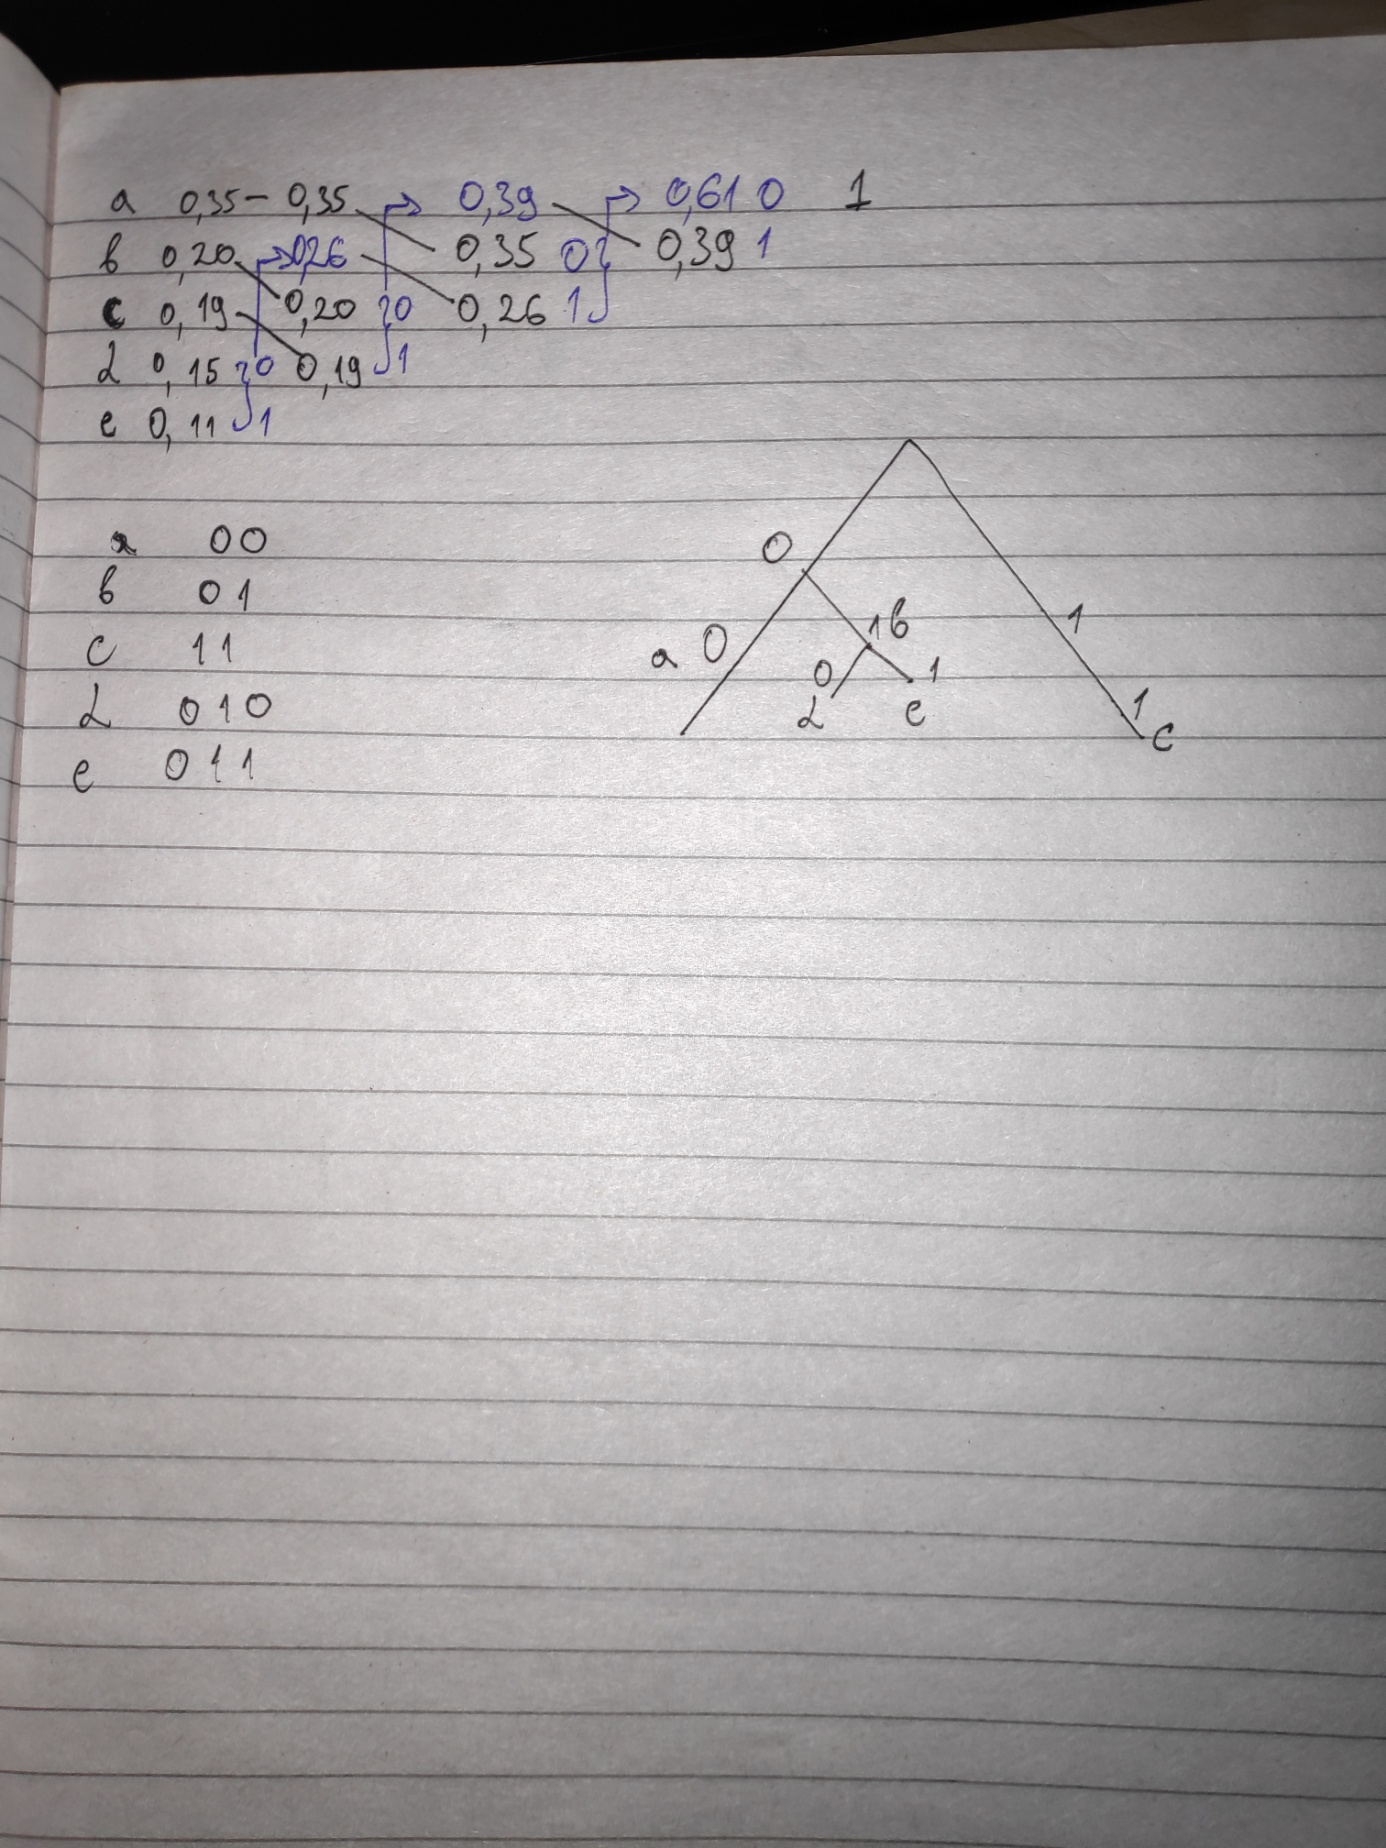 a 0,35 – 0,35 → 0,39 → 0,61 0 1
b 0,20 → 0,26 0,35 0 0,39 1
c 0,19 0,20 0 0,26 1
d 0,15 0 0,19 1
e 0,11 1
a 00
b 01
c 11
d 010
e 011
0
1 1b
a 0
0 1
d e
1 c